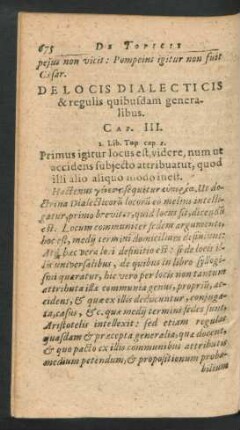 675 DE TOPICIS
pejus non vicit: Pompeius igitur non fuit
Cæsar.
DE LOCIS DIALECTICIS
& regulis quibusdam genera-
libus.
CAP. III.
2. Lib. Top cap 2.
Primus igitur locus est videre, num ut
accidens subjecto attribuatur, quod
illi alio aliquo modo inest.
Hactenus sequitur Ut do-
ctrina Dialecticorū locorū eò meliùs intelli-
gatur, primò breviter, quid locus sit, dicendū
est. Locum communiter sedem argumenti,
hoc est, medij termini domicilium
Atq; hæc vera loci definitio est: si de locis il-
lis universalibus, de quibus in libro
sius queratur, hic verò per locis non tantum
attributa illa communia genus, propriū, ac-
cidens, & quæ ex illis deducuntur, conjuga-
ta, casus, &c. quæ medij termini sedes sunt,
Aristotelis intellexit: sed etiam regulas
quasdam & præcepta generalia, quæ docent,
& quo pacto ex illis communibus attributis
medium petendum, & propositionum proba-
bilium